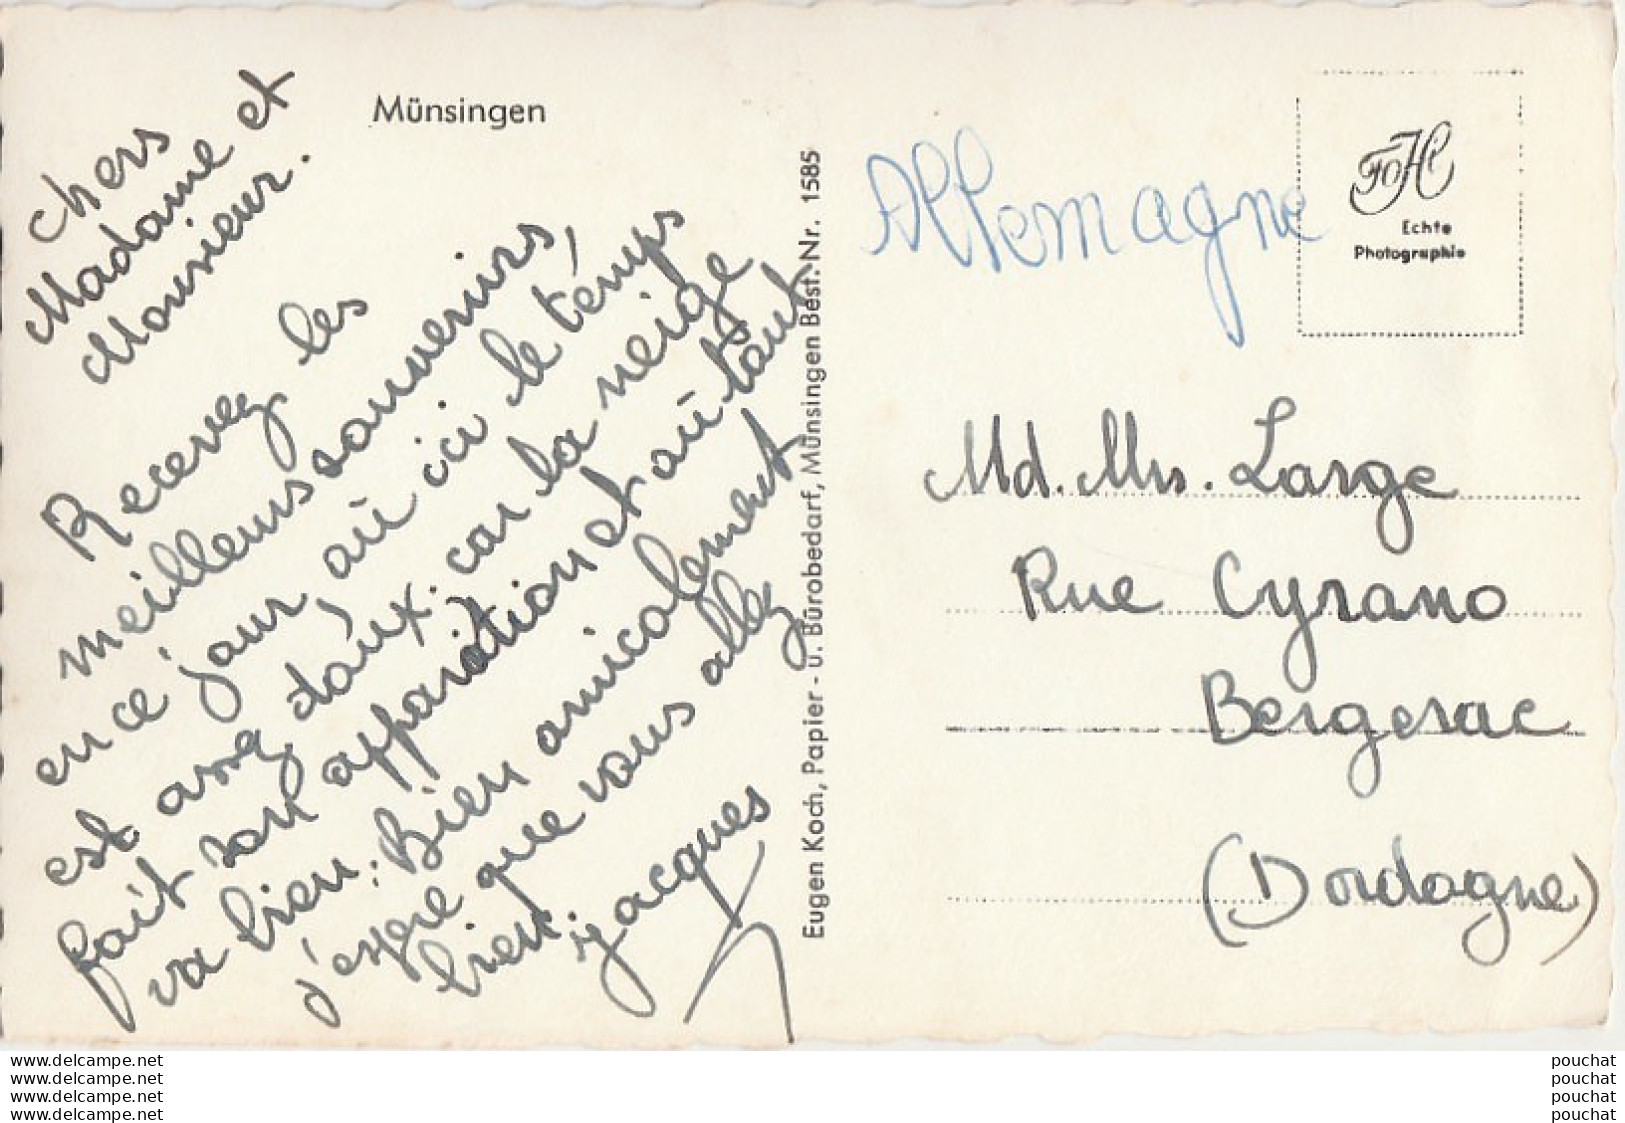 Münsingen
Chers
Madame et
Monsieur.
Recevez les
meilleurs souvenirs,
en ce jour, où ici le temps
est assez doux. car la neige
fait son apparition et autant
va bien. Bien amicalement
j'espère que vous allez
bien. Jacques
Eugen Koch, Papier - u. Bürobedarf, Münsingen Best. Nr. 1585
Allemagne
Echte
Photographie
Md. Mrs. Large
Rue Cyrano
Bergerac
(Dordogne)
www.delcampe.net
www.delcampe.net
www.delcampe.net
www.delcampe.net
pouchat
pouchat
pouchat
pouchat